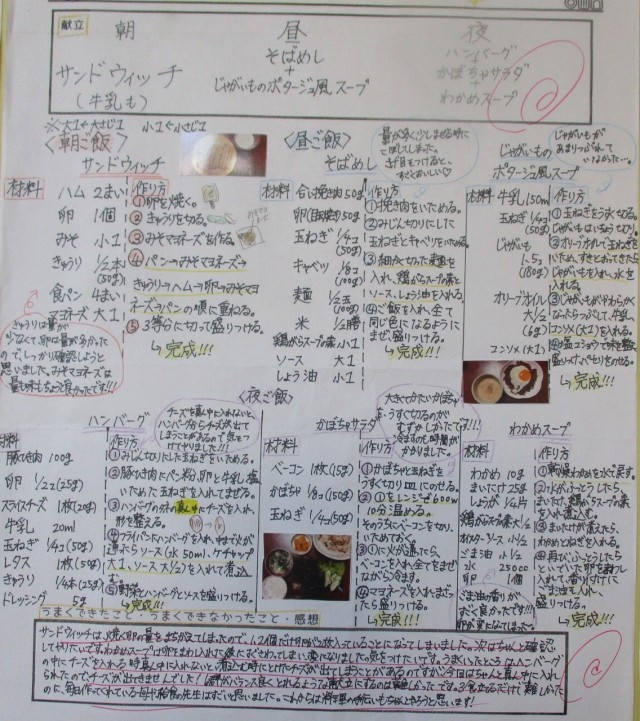 献立
朝
サンドウィッチ
(牛乳も)
昼
そばめし
+
じゃがいものポタージュ風スープ
夜
ハンバーグ
+
かぼちゃサラダ
+
わかめスープ
※大1←大さじ1 小1←小さじ1
朝ご飯
サンドウィッチ
材料
ハム 2まい
卵 1個
みそ 小1
きゅうり 1/2本
(50g)
食パン 4まい
マヨネーズ 大1
作り方
①卵を焼く。
②きゅうりを切る。
③みそマヨネーズを作る。
④パン→みそマヨネーズ→
きゅうり→ハム→卵→みそマヨ
ネーズ→パンの順に重ねる。
⑤3等分に切って盛りつける。
↳完成!!!
きゅうりは量が
少なくて、卵は量が多かった
ので、しっかり確認しようと
思いました。みそマヨネーズは
昼ご飯
そばめし
材料
合い挽き肉50g
卵(目玉焼き)50g
玉ねぎ 1/4コ
(50g)
キャベツ 1/8コ
(100g)
麺 1/2玉
(100g)
米 1/2膳
鶏がらスープの素 小1
ソース 大1
しょう油 小1
作り方
①挽き肉をいためる。
②みじん切りにした
玉ねぎとキャベツをいためる。
③細かく切った麺を
入れ、鶏がらスープの素と
ソース、しょう油を入れる。
④ご飯を入れ、全て
同じ色になるように
まぜ、盛りつける。
↳完成!!!
じゃがいもの
ポタージュ風スープ
じゃがいもが
あまりつぶれて
いなかった…。
材料
牛乳 150ml
玉ねぎ 1/4コ
(50g)
じゃがいも
(180g)
オリーブオイル
大1/2
(6g)
コンソメ(大1)
作り方
①玉ねぎをうす切り、
じゃがいもを入れ、水を
入れる。
③じゃがいもがやわらかく
なったらつぶして、牛乳、
コンソメ(大1)を入れる。
④塩コショウで味を整え、
盛りつけ、パセリをのせる。
↳完成!!!
夜ご飯
ハンバーグ
チーズを真ん中に入れないと、
ハンバーグからチーズが出て
しまうことがあるので気をつけ
てやりました!!
材料
豚ひき肉 100g
卵 1/2コ(25g)
スライスチーズ 1枚(20g)
牛乳 20ml
玉ねぎ 1/4コ(50g)
レタス 1枚(50g)
きゅうり 1/4本(25g)
ドレッシング 5g
作り方
①みじん切りにした玉ねぎをいためる。
②豚ひき肉にパン粉、卵と牛乳、塩
いためた玉ねぎを入れてまぜる。
③ハンバーグのたね真ん中にチーズを入れ、
形を整える。
④フライパンにハンバーグを入れ、中まで火が
通ったらソース(水50ml、ケチャップ
大1、ソース大1/2)を入れて煮込む。
⑤野菜とハンバーグとソースを盛りつける。
↳完成!!!
かぼちゃサラダ
大きくてかたいかぼちゃ
をうすく切るのが
むずかしかったです!!!
冷ますのに時間が
かかりました。
材料
ベーコン 1枚(15g)
かぼちゃ 1/8コ(150g)
玉ねぎ 1/4コ(50g)
作り方
①かぼちゃと玉ねぎを
うすく切り皿にのせる。
②①をレンジで600w
10分温める。
そのうちにベーコンを切り、
いためておく。
③①に火が通ったら、
ベーコンを入れ、全てまぜ
ながら冷ます。
④マヨネーズを入れまざっ
たら盛りつける。
↳完成!!!
わかめスープ
材料
わかめ 10g
まいたけ 25g
しょうが 1/4片
鶏がらスープの素 大1/2
オイスターソース 小1/2
ごま油 小1/2
水 250cc
卵 1個
ごま油の香りが
すごく良かったです!!!
卵が変になってしまった…
作り方
①乾燥わかめを水で戻す。
②水がふっとうしたら
まいたけ、鶏がらスープの素
を入れ煮込む。
③まいたけが煮えたら、
わかめとねぎを入れる。
④再び、ふっとうしたら
といておいた卵を割り
入れて、香り付けに
ごま油も入れて、
盛りつける。
↳完成!!!
うまくできたこと、うまくできなかったこと・感想
サンドウィッチは、焼く卵の量をまちがえてしまったので、1人2個だけ卵がたっぷり入っていることになってしまいました。次はちゃんと確認
してやりたいです。わかめスープは卵をまわし入れた後におさわってしまい変になりました。気をつけたいです。うまくいったところはハンバーグ
の中にチーズを入れる時真ん中に入れないと煮込む時にとけたチーズが出てしまうことがあるのですが今回はちゃんと真ん中に入れ